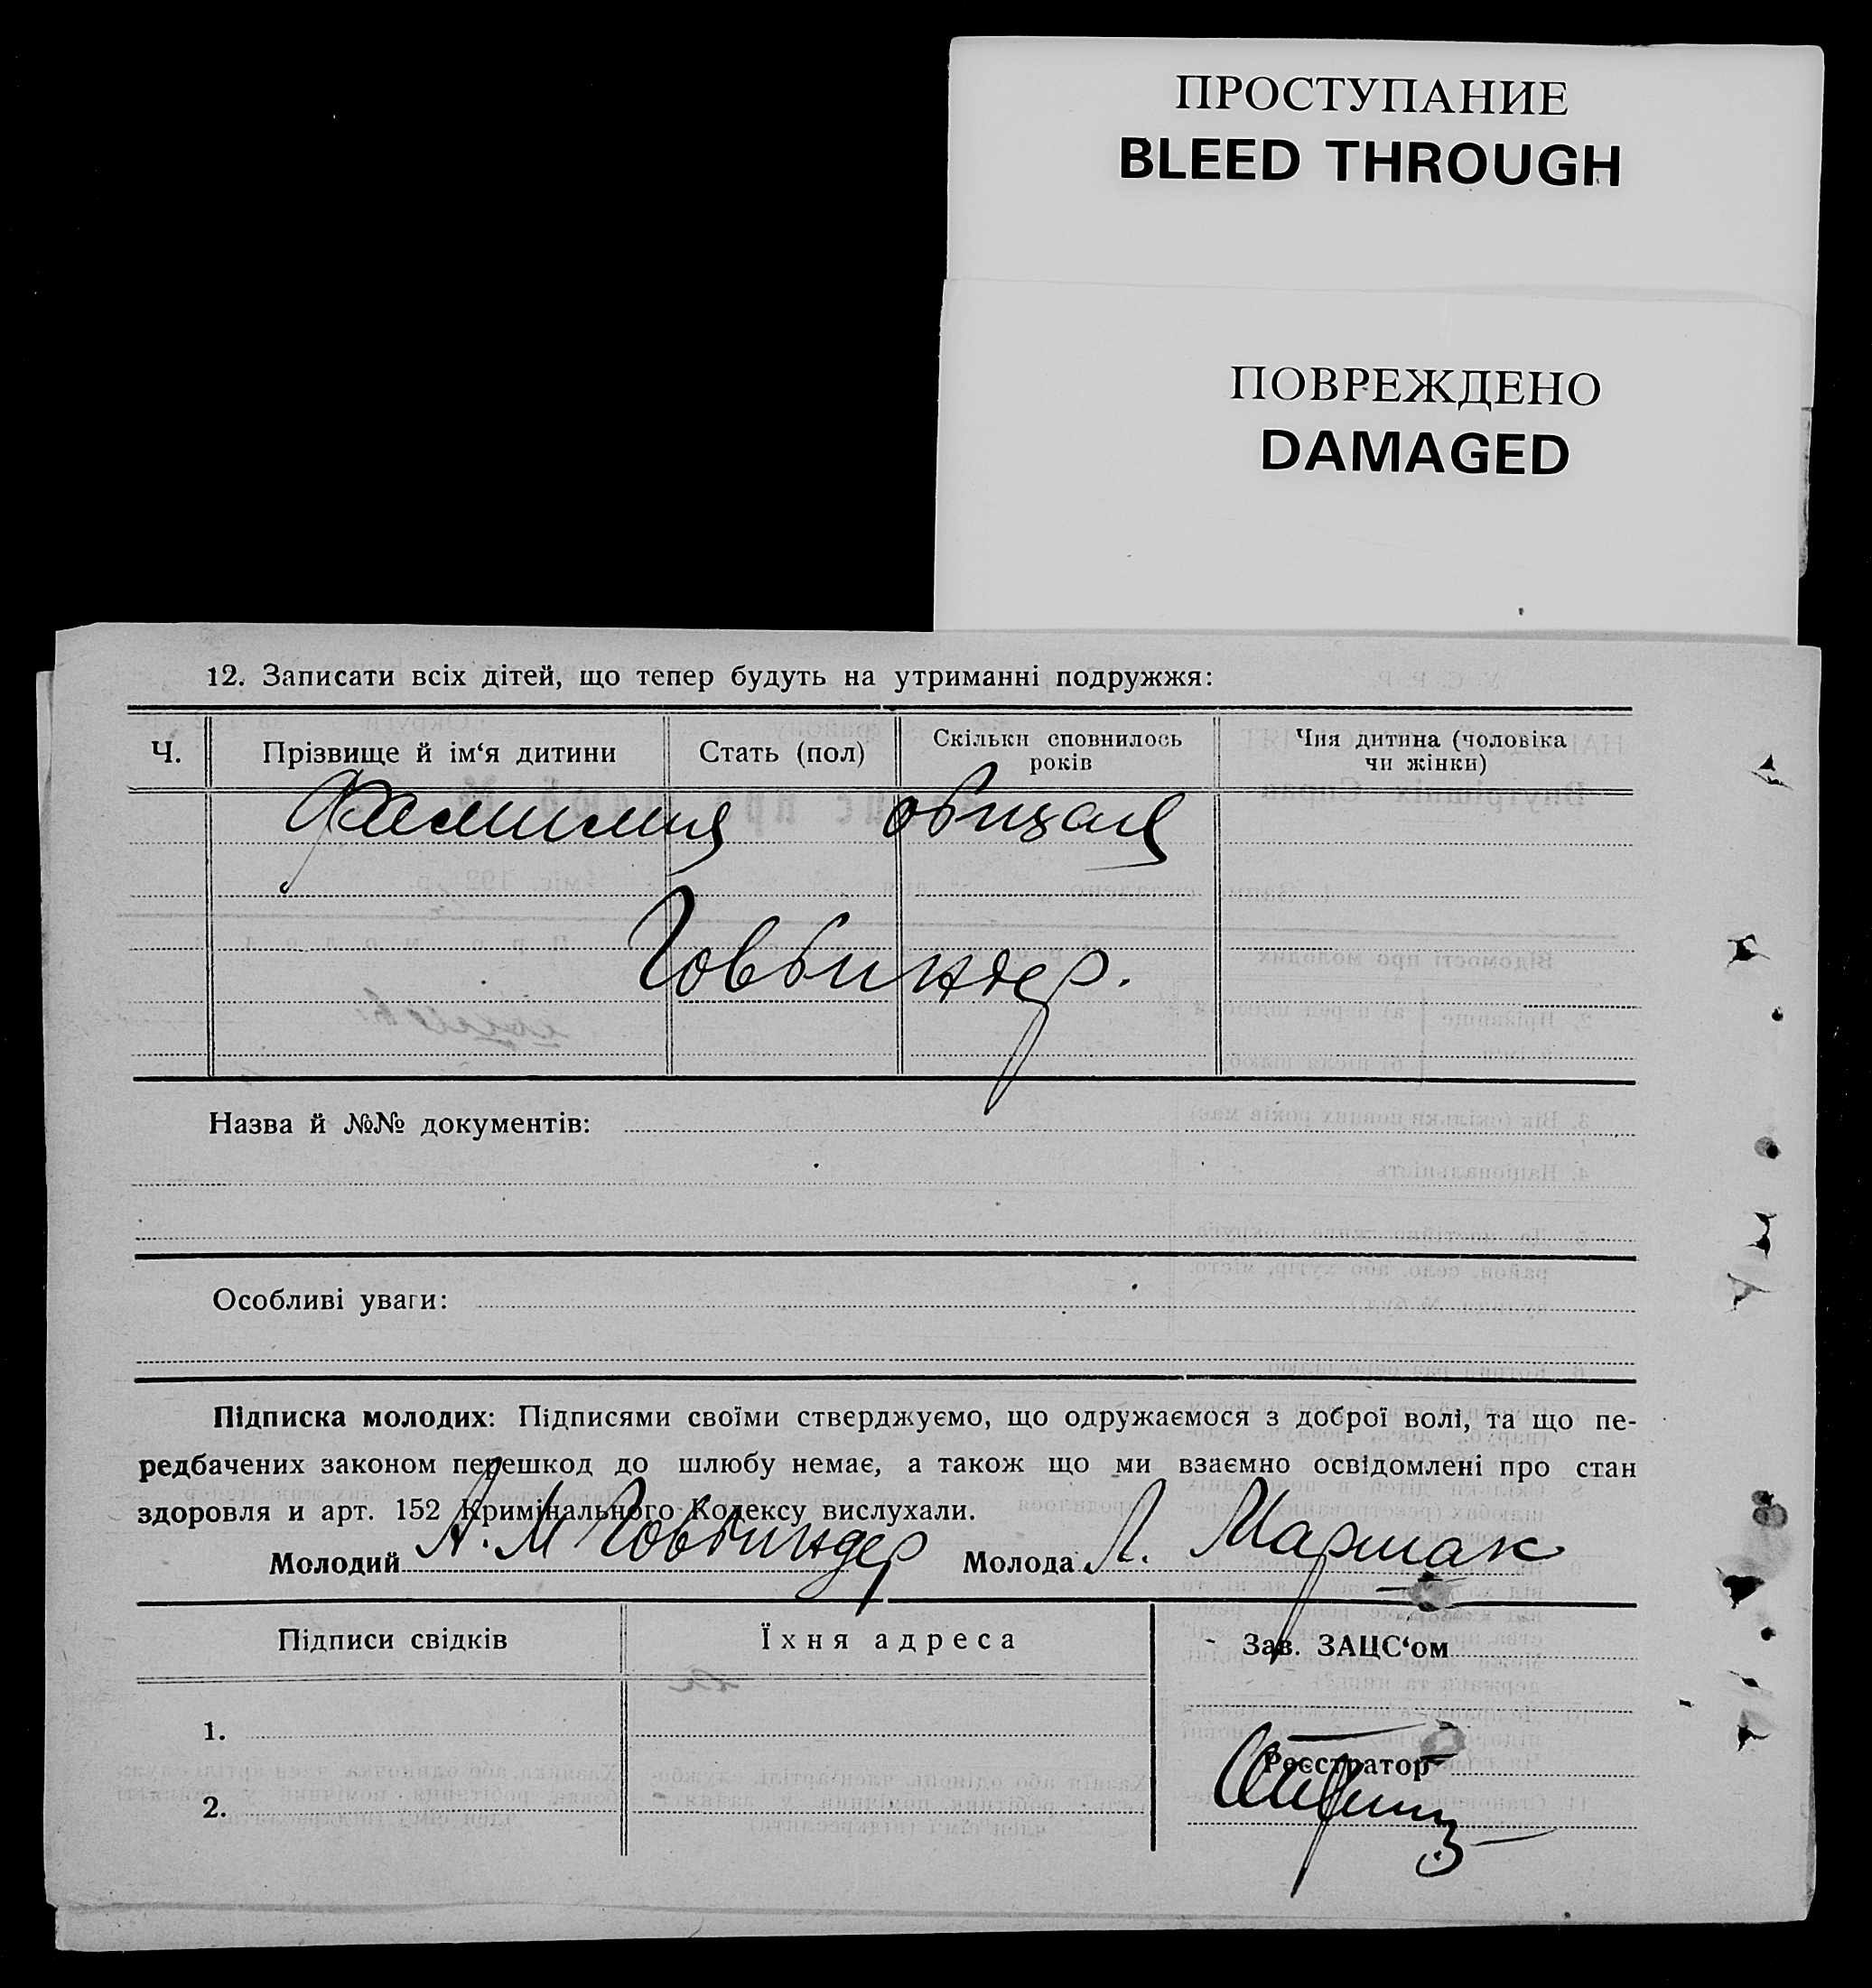 ПРОСТУПАНИЕ
BLEED THROUGH
ПОВРЕЖДЕНО
DAMAGED
12. Записати всіх дітей, що тепер будуть на утриманні подружжя:
Ч. Прізвище й ім‘я дитини Стать (пол) Скільки сповнилось років Чия дитина (чоловіка чи жінки)
Фамилия общая
Говбиндер.
Назва й №№ документів:
Особливі уваги:
Підписка молодих: Підписями своїми стверджуємо, що одружаємося з доброї волі, та що пе-
редбачених законом перешкод до шлюбу немає, а також що ми взаємно освідомлені про стан
здоровля и арт. 152 Кримінального Кодексу вислухали.
Молодий А. М Говбиндер Молода Л. Маршак
Підписи свідків Їхня адреса Зав. ЗАЦС‘ом
1.
Реєстратор
2.